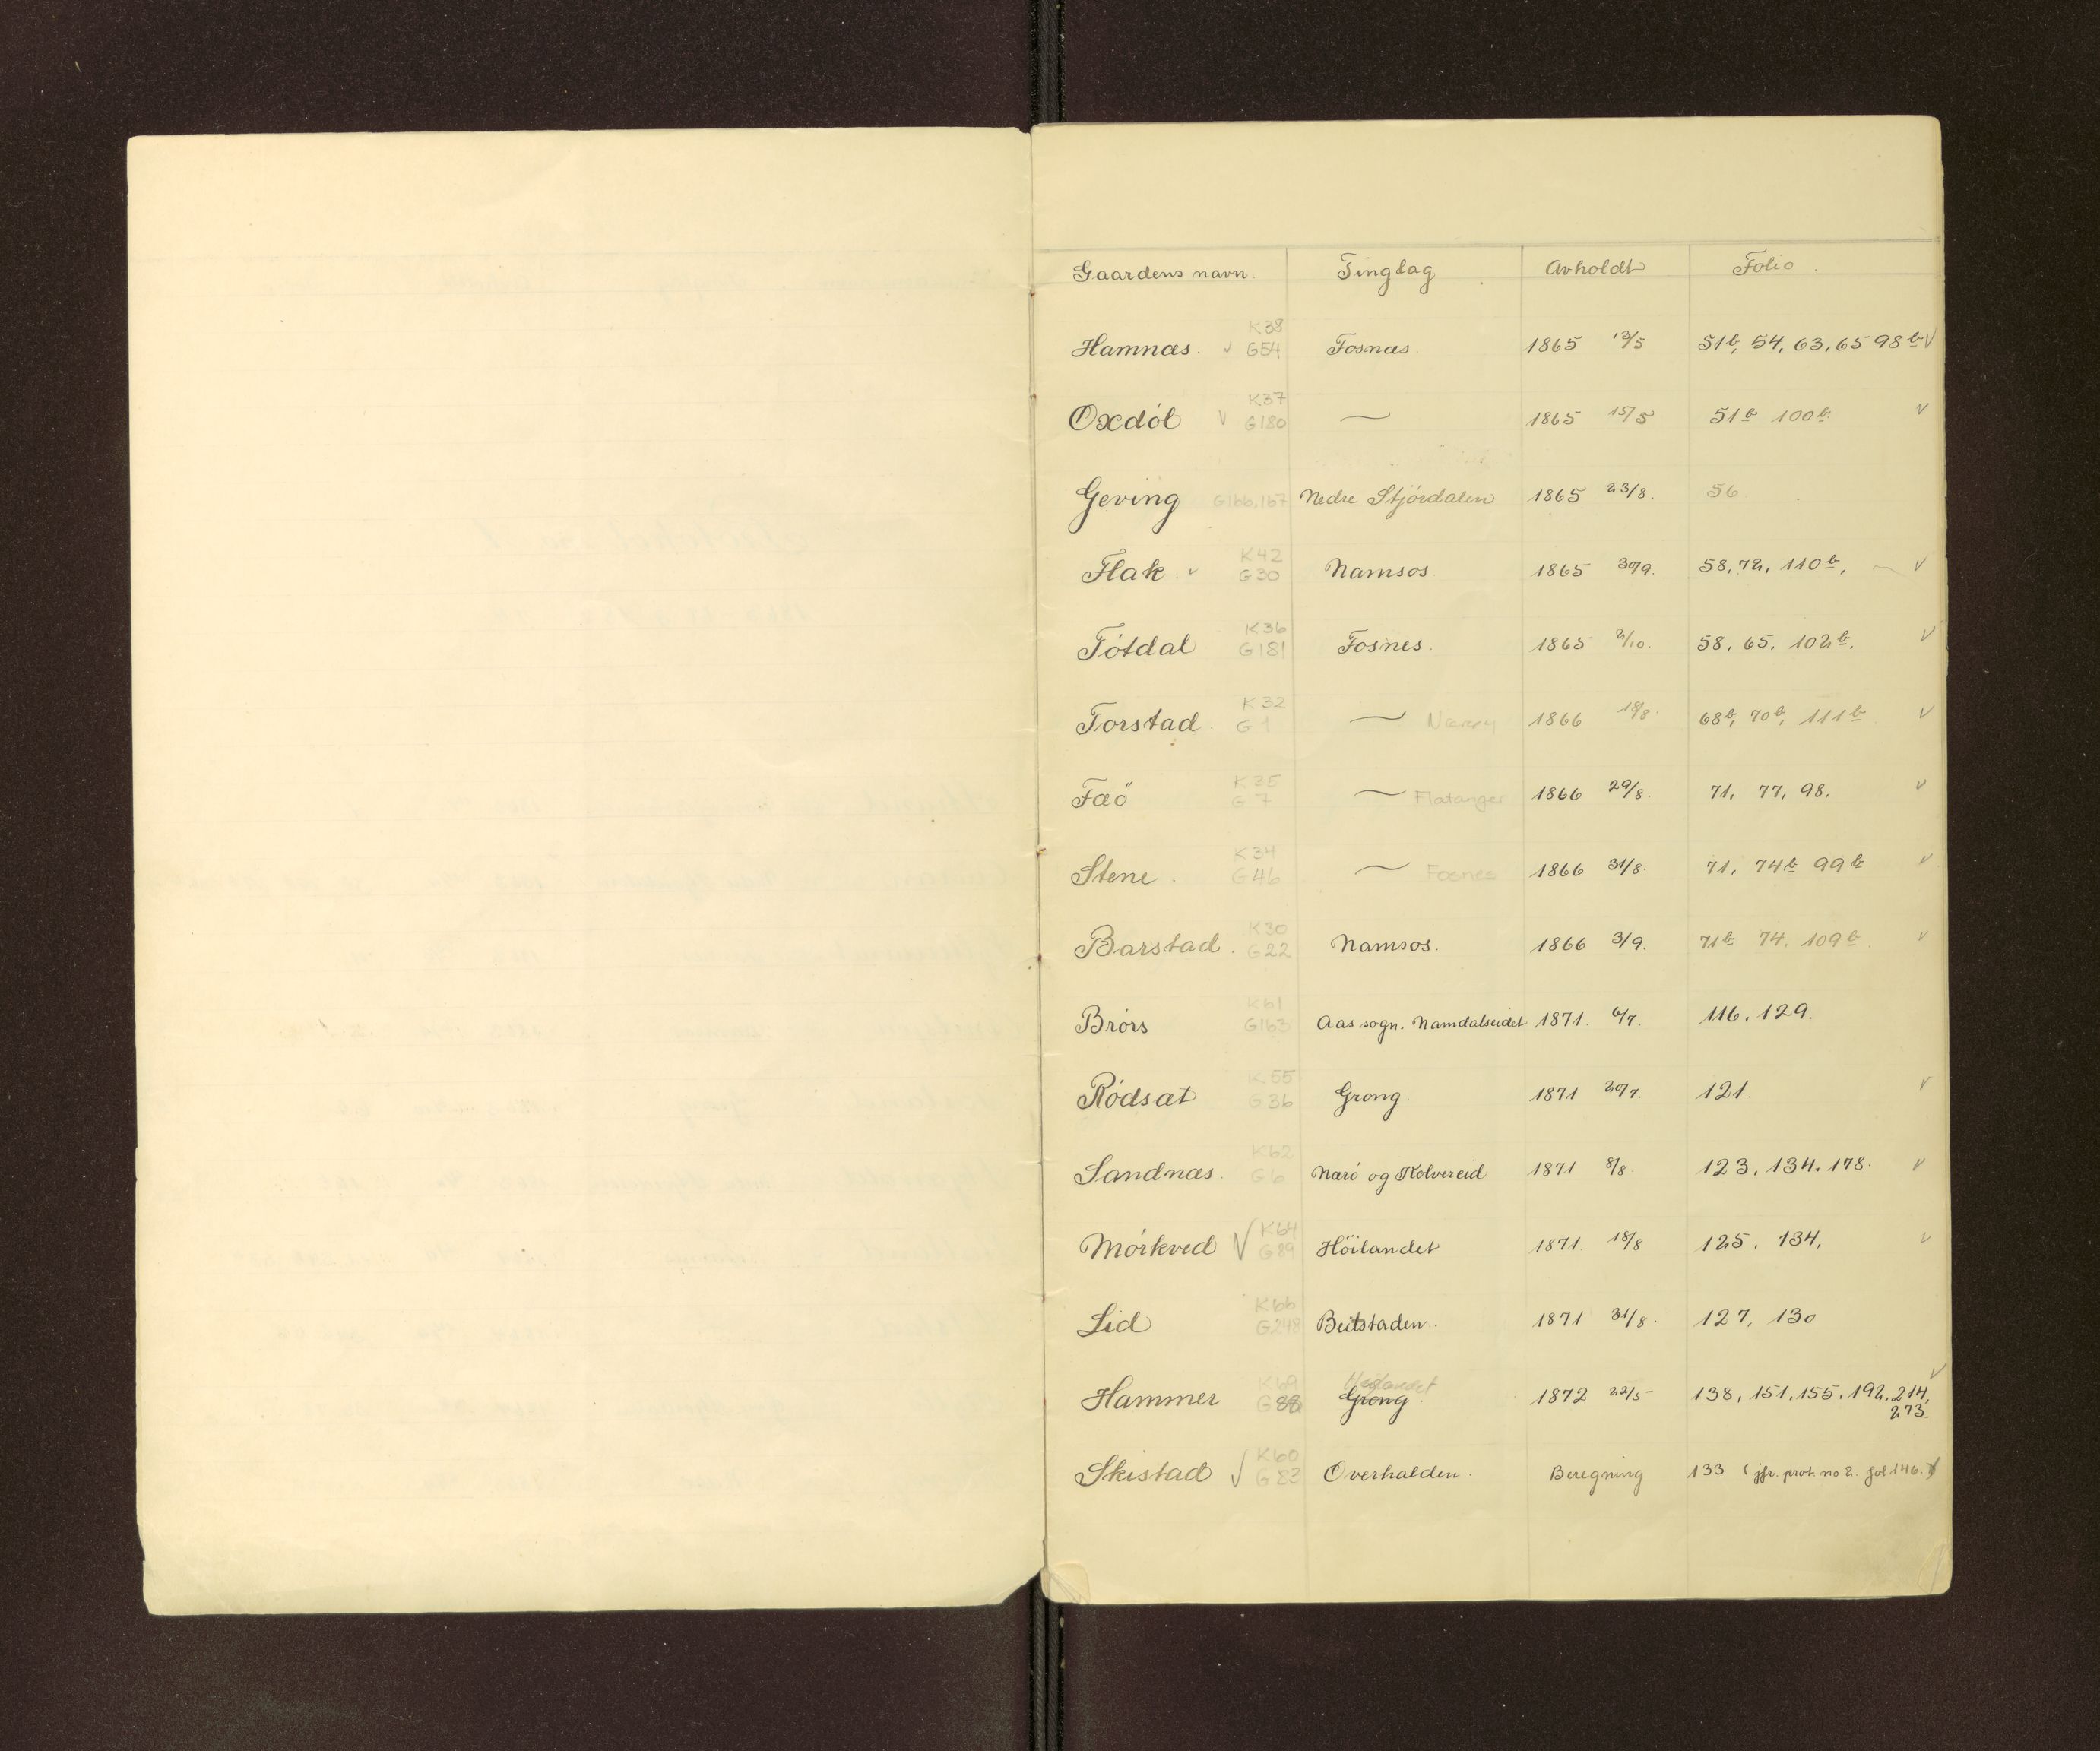 Gaardens navn. Tinglag Avholdt Folio.
K38
Hamnæs. v G54 Fosnæs. 1865 13/5 51b, 54, 63, 65 98b v
K37
Oxdól v G180 — 1865 15/5 51b 100b v
Geving G166,167 Nedre Stjórdalen 1865 23/8. 56
K42
Flak. v G30 Namsos. 1865 30/9. 58, 72, 110b, — v
K36
Tótdal G181 Fosnes. 1865 2/10. 58, 65, 102b. v
K32
Torstad. G1 — Nærøy 1866 18/8. 68b, 70b, 111b v
K35
Faö G7 — Flatanger 1866 29/8. 71, 77, 98. v
K34
Stene. G46 — Fosnes 1866 31/8. 71, 74b 99b v
K30
Barstad. G22 Namsos. 1866 3/9. 71b 74. 109b. v
K61
Brórs G163 Aas sogn. Namdalseidet 1871. 6/7. 116. 129.
K55
Ródsat G36 Grong. 1871 20/7. 121. v
K62
Sandnæs. G6 Naró og Kolvereid 1871 8/8. 123. 134. 178. v
K64
Mórkved v G89 Höilandet 1871. 18/8 125. 134. v
K66
Lid G248 Beitstaden. 1871 31/8. 127, 130
K69 v
Hammer G88 Grong. 1872 22/5 138, 151, 155, 192, 214,
273.
K60
Skistad v Overhalden. Beregning 133 (jfr. prot. no 2. fol 146.)